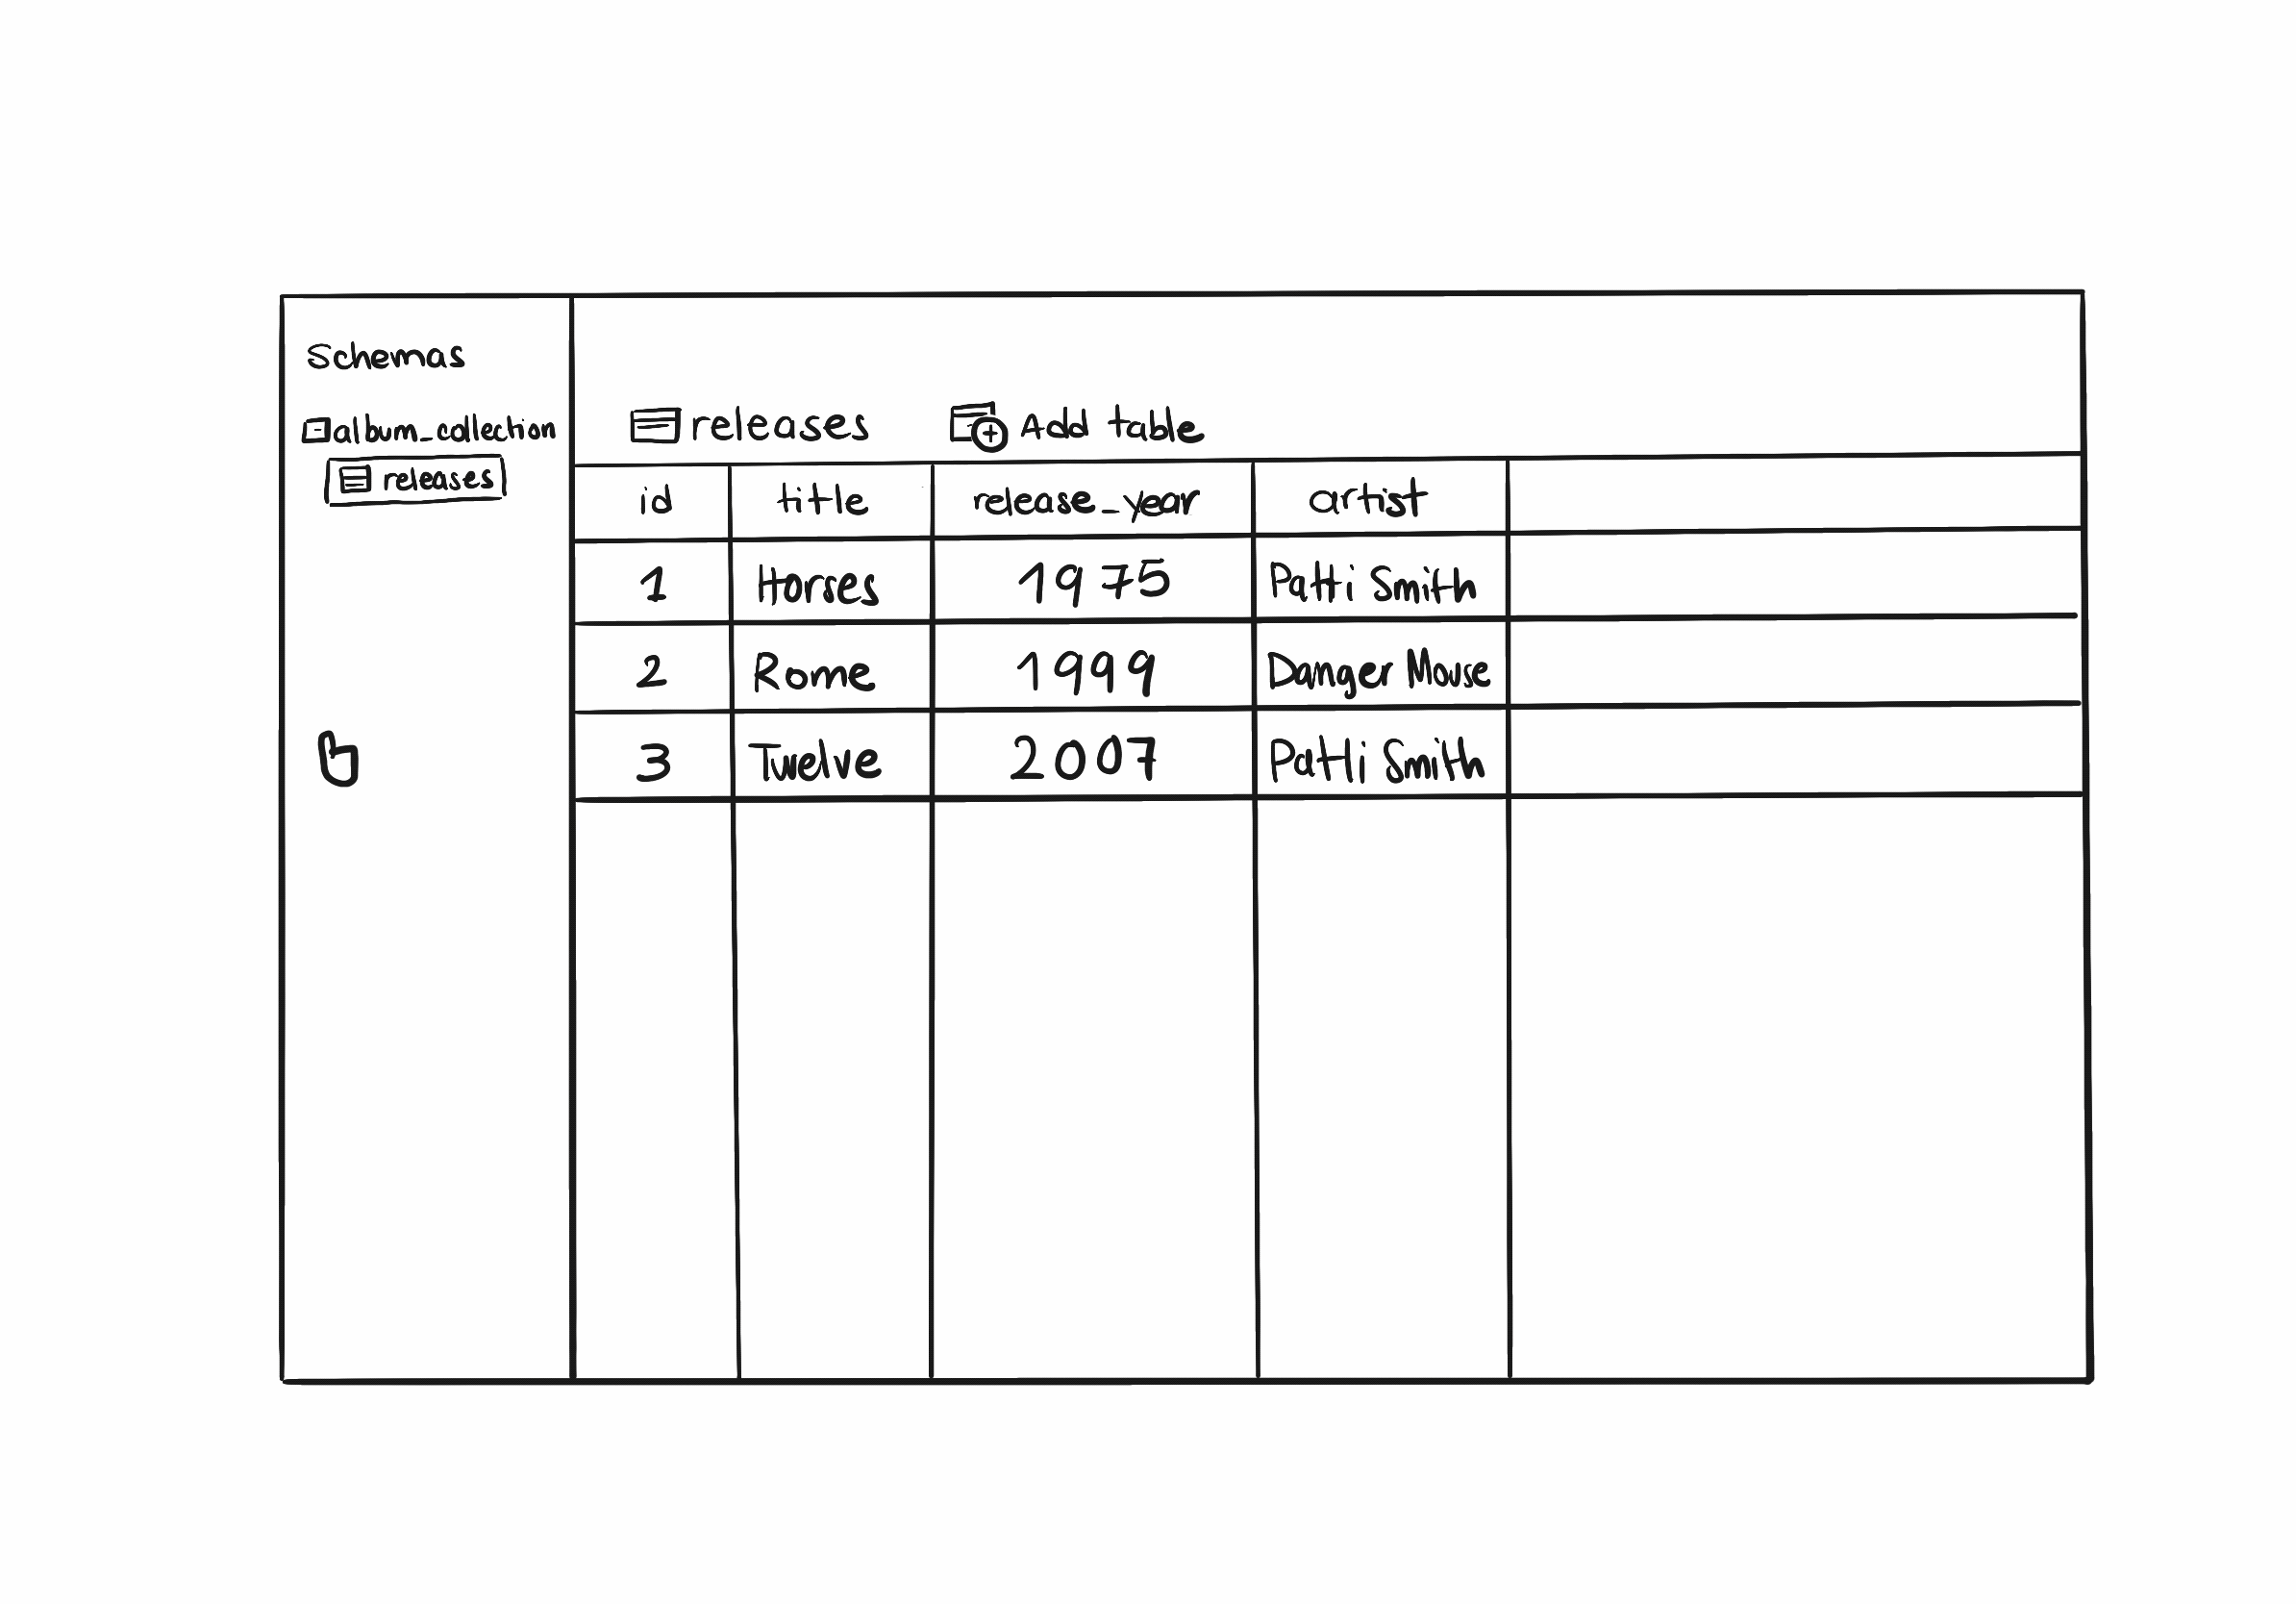 Schemas
album_collection
releases
releases Add table
id title release_year artist
1 Horses 1975 Patti Smith
2 Rome 1999 Danger Mouse
3 Twelve 2007 Patti Smith